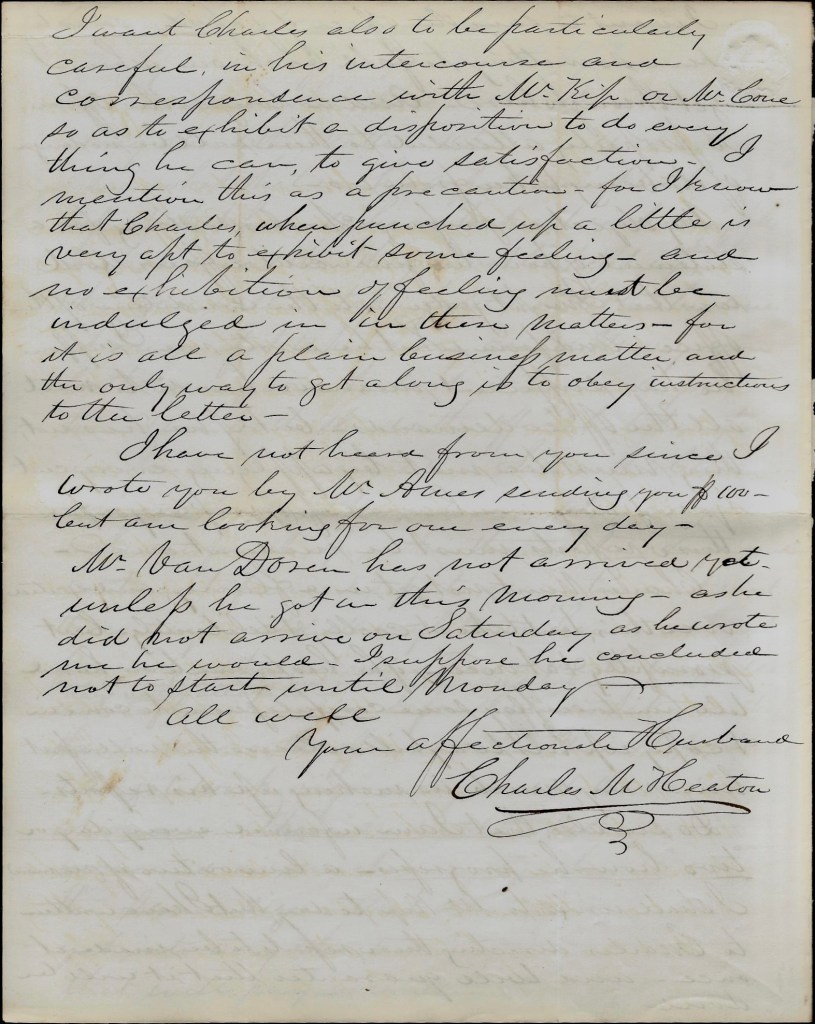 I want Charles also to be particularly
careful, in his intercourse and
correspondence with Mr. Kip or Mr. Cone
so as to exhibit a disposition to do every
thing he can, to give satisfaction - I
mention this as a precaution - for I know
that Charles, when punched up a little is
very apt to exhibit some feeling - and
no exhibition of feeling must be
indulged in in these matters - for
it is all a plain business matter and
the only way to get along is to obey instructions
to the letter -
I have not heard from you since I
wrote you by Mr. Ames sending you $100 -
but am looking for one every day -
Mr. Van Doren has not arrived yet -
unless he got in this morning - as he
did not arrive on Saturday as he wrote
me he would - I suppose he concluded
not to start until Monday
All well
Your affectionate Husband
Charles M Heaton